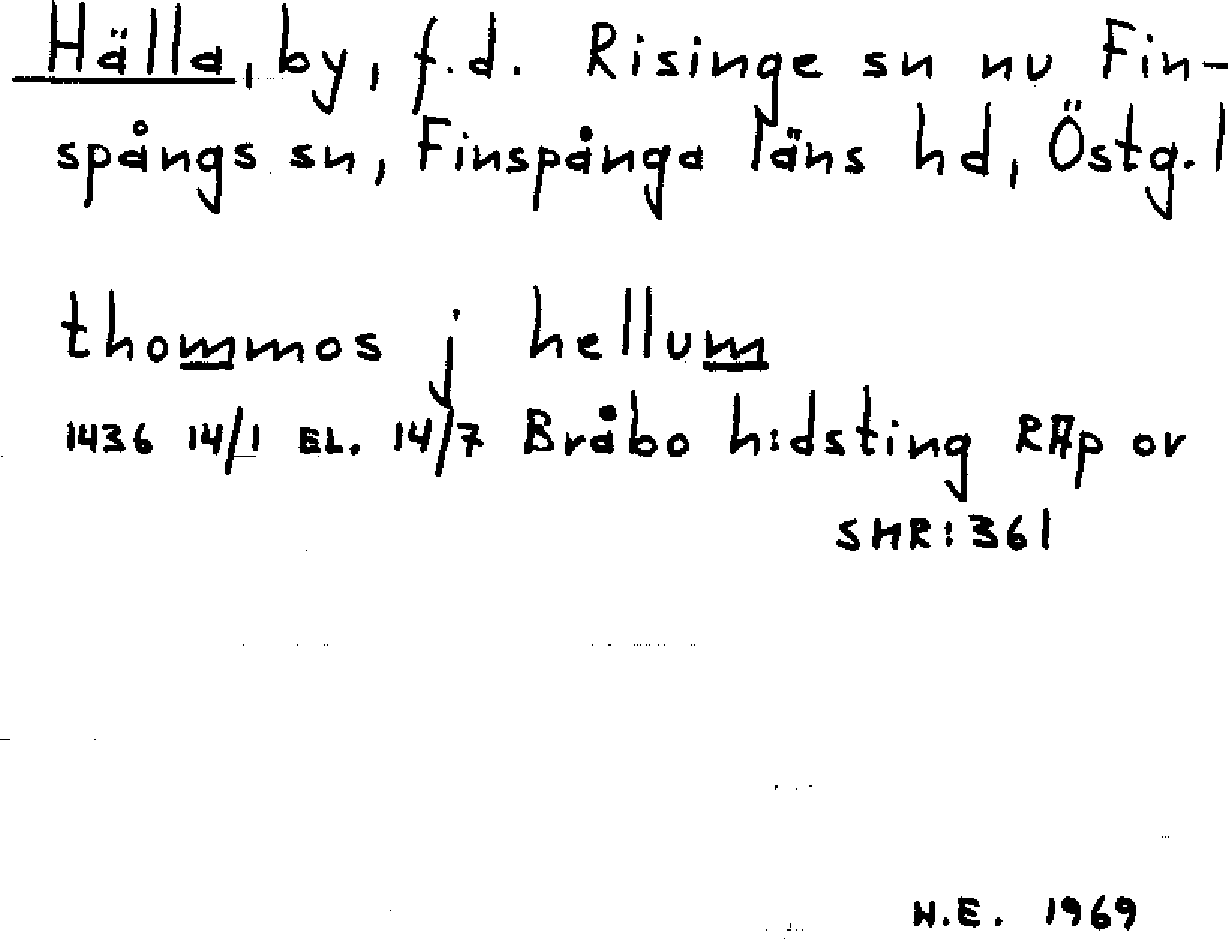 Hälla, by, f.d. Risinge sn nu Fin-
spångs sn, Finspånga läns hd, Östg. l
thommos j hellum
1436 14/1 EL. 14/7 Bråbo h:dsting RAp or
SHR: 361
N.E. 1969